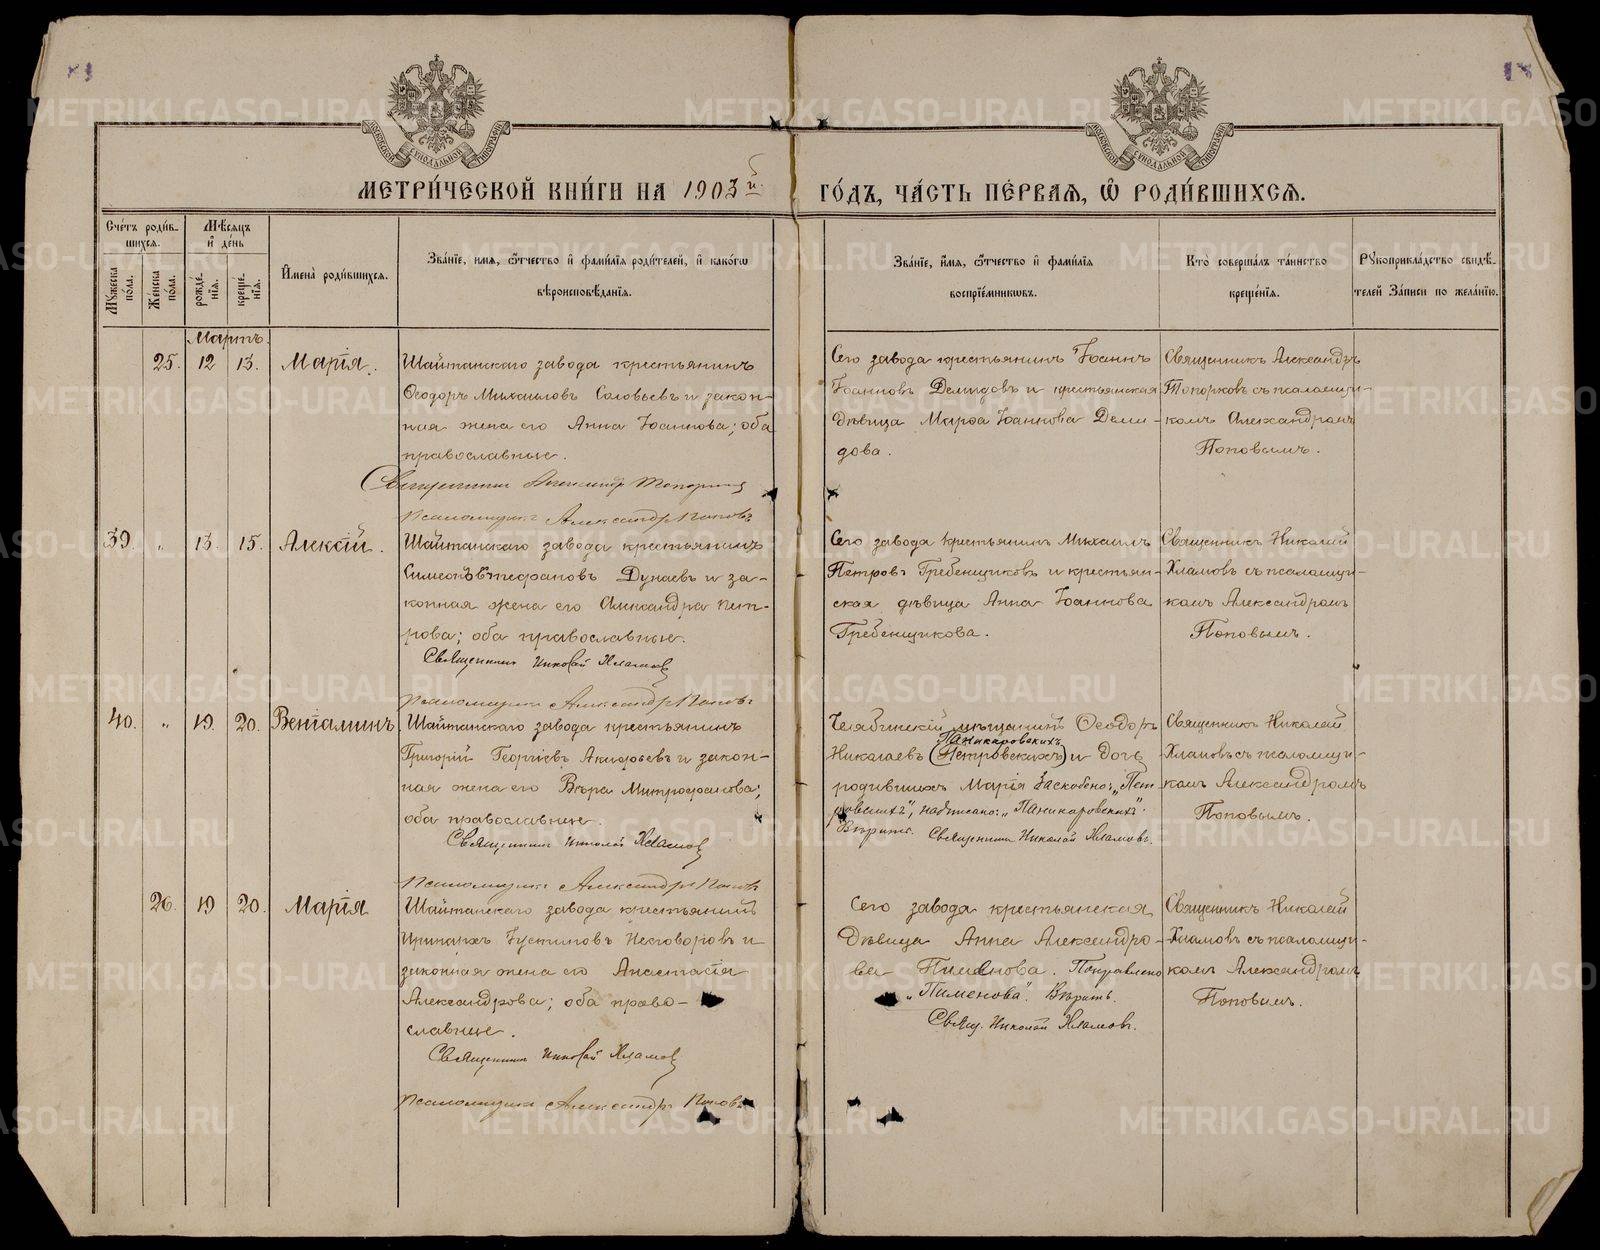 МЕТРИ́ЧЕСКОЙ КНИ́ГИ НА 1903й ГО́ДЪ, ЧА́СТЬ ПЕ́РВАѦ, Ѽ РОДИ́ВШИХСѦ.
Сче́тъ роди́в-
шихсѧ.
Мѣ́сѧцъ
и҆ де́нь
Мꙋ́жеска по́ла.
Же́нска по́ла.
рожде́нїѧ.
креще́нїѧ.
И҆мена̀ роди́вшихсѧ.
Зва́нїе, и҆мѧ, ѻ҆́тчество и҆ фами́лїѧ роди́телей, и҆ како́гѡ
вѣроисповѣ́данїѧ.
Зва́нїе, и҆́мѧ, ѻ҆́тчество и҆ фами́лїѧ
воспрїе́мникѡвъ.
Кто̀ соверша́лъ та́инство
креще́нїѧ.
Рꙋкоприкла́дство свидѣ́-
телей За́писи по жела́нїю.
Мартъ.
25. 12 13. Марія.
Шайтанскаго завода крестьянинъ
Ѳеодоръ Михаиловъ Соловьевъ и закон-
ная жена его Анна Іоаннова; оба
православные.
Священникъ Александръ Топорковъ
Псаломщикъ Александръ Поповъ
Сего завода крестьянинъ Іоаннъ
Іоанновъ Демидовъ и крестьянская
дѣвица Марѳа Іоаннова Деми-
дова.
Священникъ Александръ
Топорковъ съ псаломщи-
комъ Александромъ
Поповымъ.
39. „ 13. 15. Алексій.
Шайтанскаго завода крестьянинъ
Симеонъ Стефановъ Дунаевъ и за-
конная жена его Александра Пет-
рова; оба православные.
Священникъ Николай Хламовъ
Псаломщикъ Александръ Поповъ
Сего завода крестьянинъ Михаилъ
Петровъ Гребенщиковъ и крестьян-
ская дѣвица Анна Іоаннова
Гребенщикова.
Священникъ Николай
Хламовъ съ псаломщи-
комъ Александромъ
Поповымъ.
40. „ 19. 20. Веніаминъ.
Шайтанскаго завода крестьянинъ
Григорій Георгіевъ Анисьевъ и закон-
ная жена его Вѣра Митрофанова;
оба православные.
Священникъ Николай Хламовъ
Псаломщикъ Александръ Поповъ
Челябинскій мѣщанинъ Ѳеодоръ
Паникаровскихъ
Николаевъ (Петровскихъ) и дочь
родившихъ Марія Заскоблено: „Пет-
ровскихъ", надписано: „Паникаровскихъ".
Вѣрить. Священникъ Николай Хламовъ.
Священникъ Николай
Хламовъ съ псаломщи-
комъ Александромъ
Поповымъ.
26. 19 20. Марія
Шайтанскаго завода крестьянинъ
Иринархъ Іустиновъ Несговоровъ и
законная жена его Анастасія
Александрова; оба право-
славные.
Священникъ Николай Хламовъ
Псаломщикъ Александръ Поповъ
Сего завода крестьянская
дѣвица Анна Александро-
ва Пименова. Поправлено
„Пименова". Вѣрить.
Свящ. Николай Хламовъ.
Священникъ Николай
Хламовъ съ псаломщи-
комъ Александромъ
Поповымъ.
METRIKI.GASO-URAL.RU